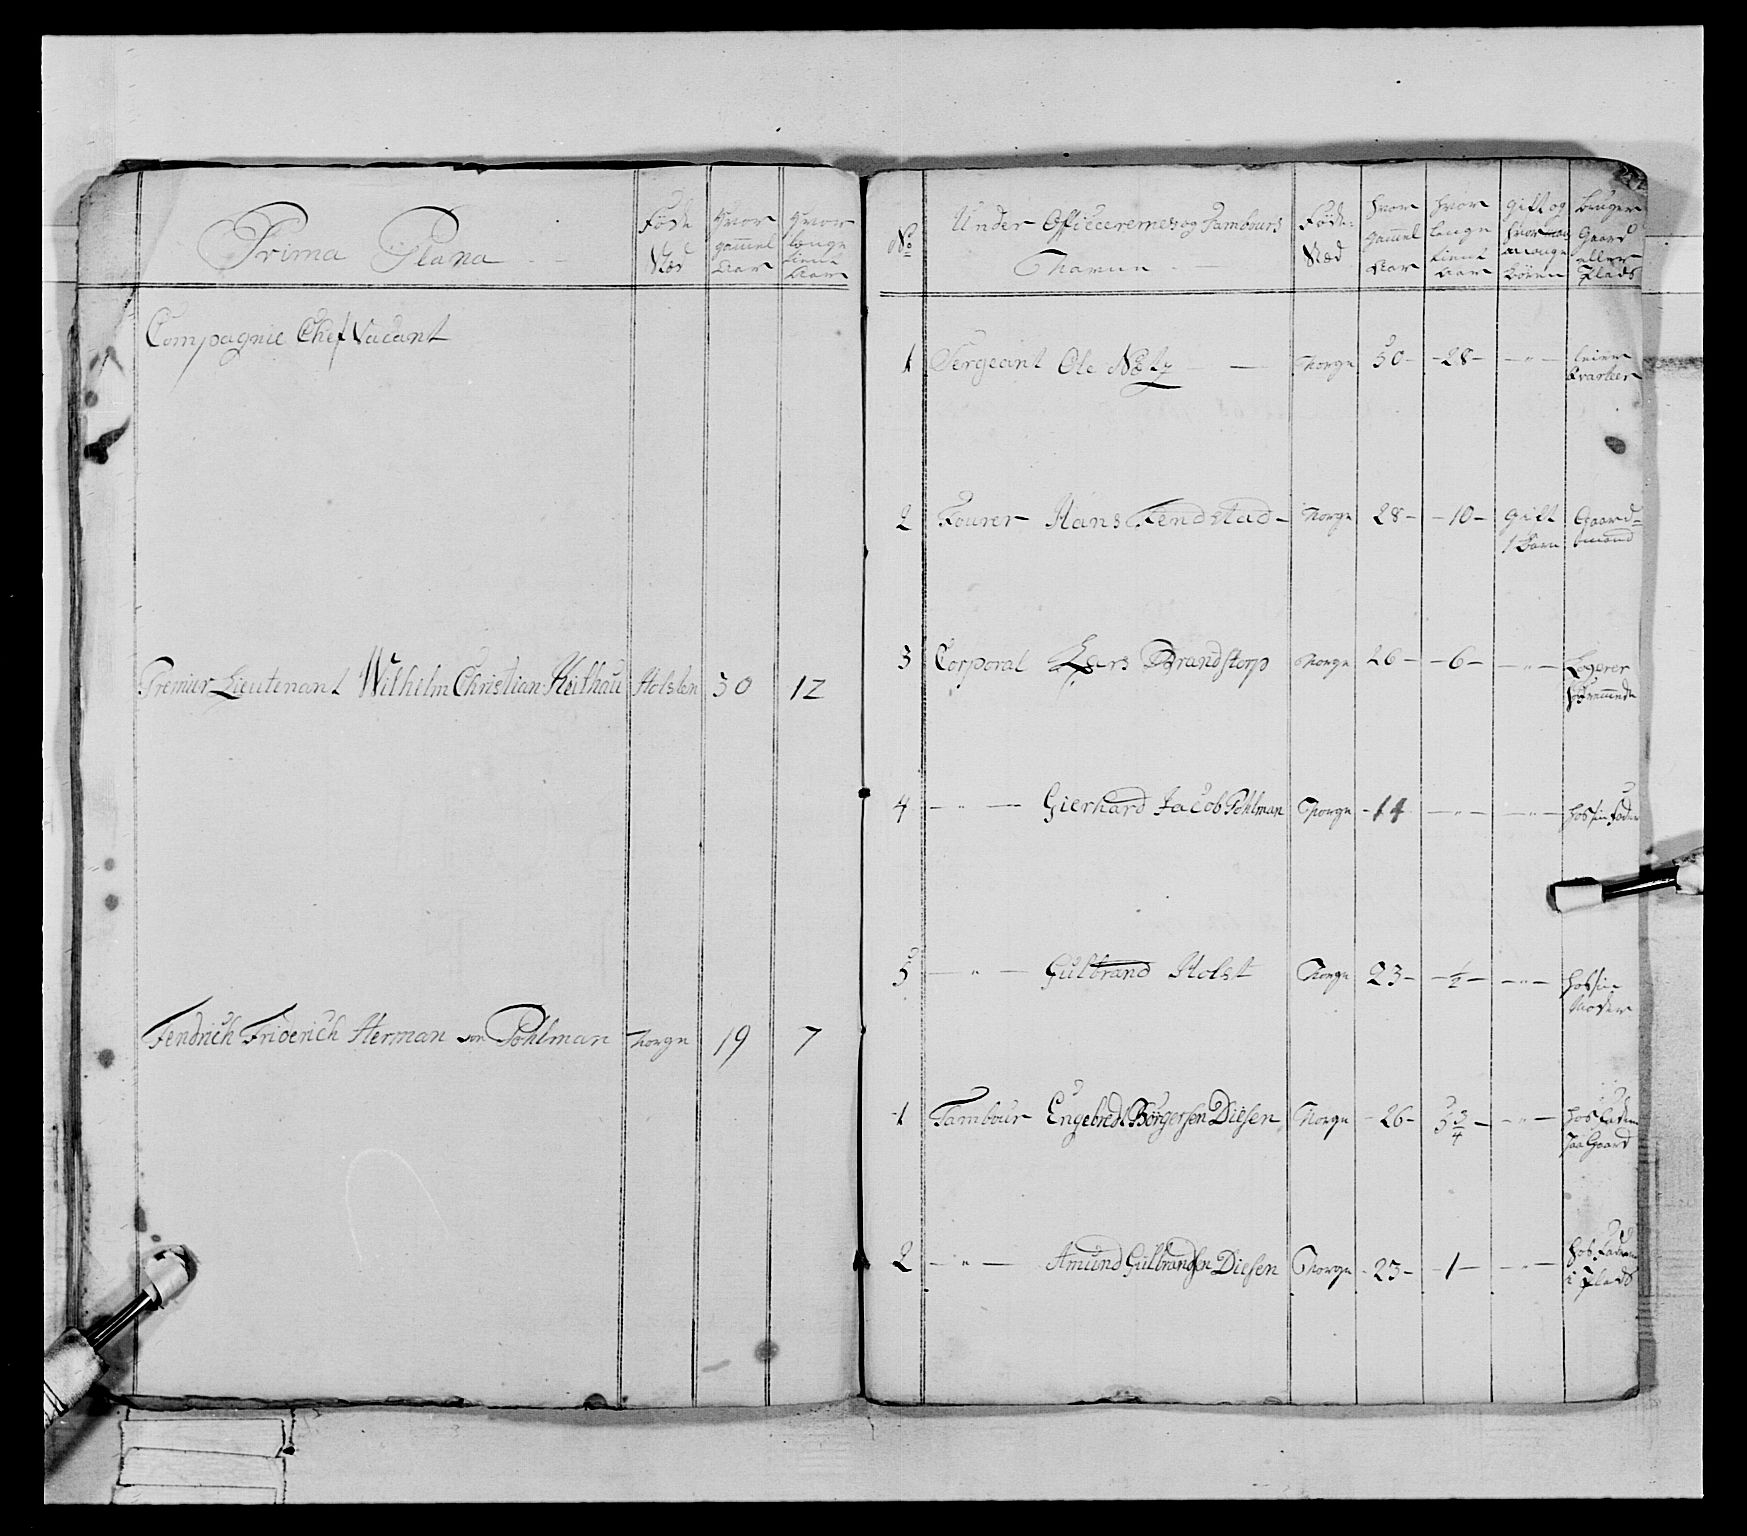 Prima Plana
Føde Stæd
Hvor gammel Aar
Hvor længe tient Aar
Compagnie Chef Vacant
Premier Lieutenant Wilhelm Christian Keithau Holsten 30 12
Fendrich Friderich Herman von Pohlman Norge 19 7
No
Under Officcerernes og Tambours
Navne
Føde Stæd
hvor gammel Aar
hvor længe tient Aar
gift og hvor mange Børn
bruger Gaard eller Plads
1 Sergeant Ole Nætz Norge 50 - 28 - - " - leier
Qvarteer
2 Fourer Hans Fendstad Norge 28 - 10 - gift Gaard-
1 Barn mand
3 Corporal Lars Brandstorp Norge 26 - 6 - - " - Logerer
fremmede
4 - " - Gierhard Jacob Pohlman Norge - 14 - " - - " - hos sin Fader
5 - " - Gulbrand Holst Norge 23 - 1/2 - - " - hos sin
Moder
1 Tambour Engebredt Børgersen Diesen Norge - 26 - 5 3/4 - - " - hos Faderen
paa Gaard
2 - " - Amund Gulbrandsen Diesen Norge - 23 - 1 - - " - hos Faderen
i Plads